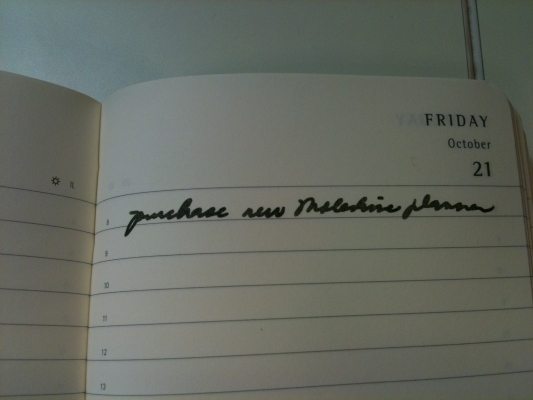 FRIDAY
October
21
8 purchase new Moleskine planner
9
10
11
12
13